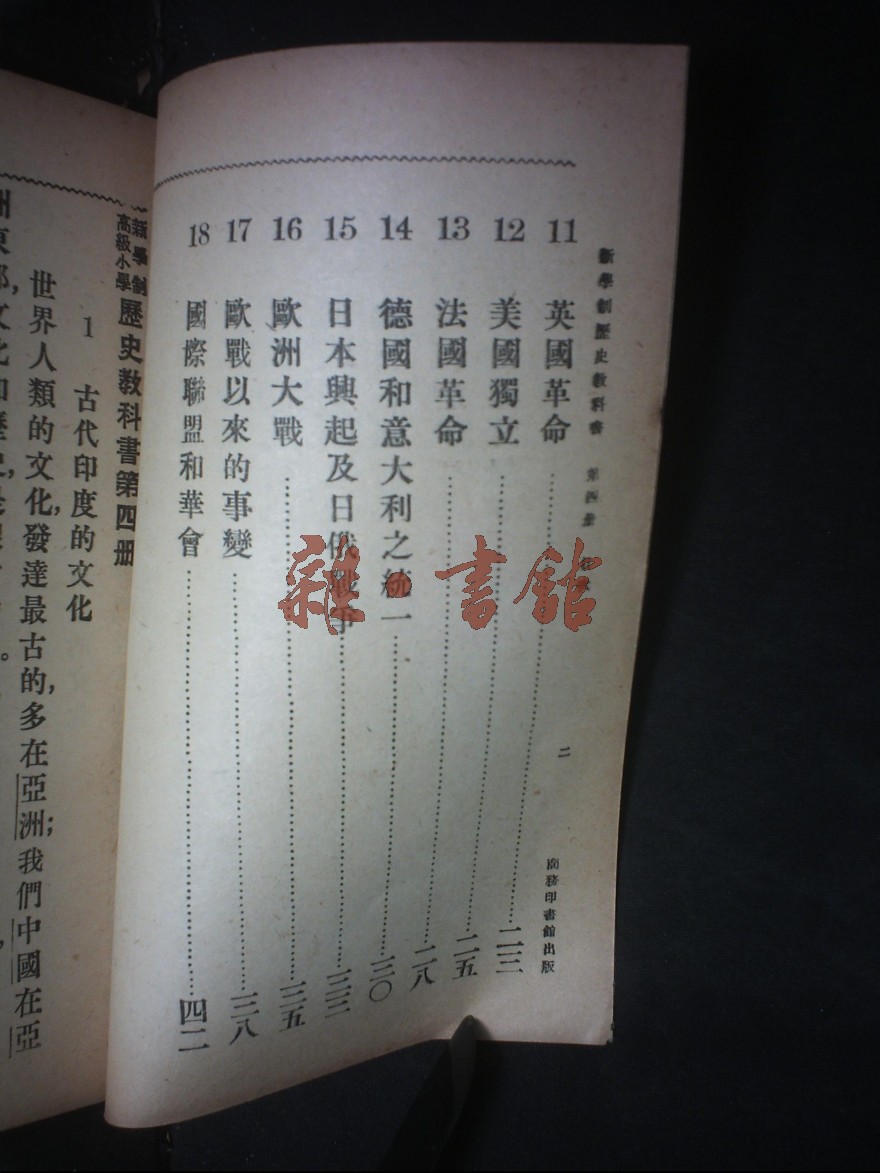 新學制歷史教科書 第四册
二
商務印書館出版
11 英國革命……二三
12 美國獨立……二五
13 法國革命……二八
14 德國和意大利之統一……三〇
15 日本興起及日俄戰爭……三三
16 歐洲大戰……三五
17 歐戰以來的事變……三八
18 國際聯盟和華會……四二
雜·書館
新學制
高級小學
歷史教科書第四册
1 古代印度的文化
世界人類的文化,發達最古的,多在亞洲;我們中國在亞
洲東部,文化和歷史,是